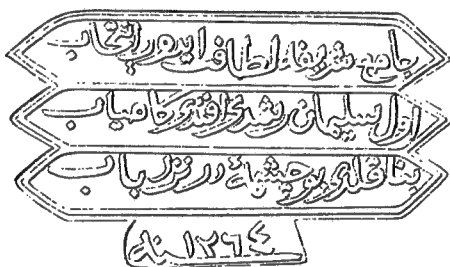 جامع شريفه لطافت ايدوب انتخاب
اول سليمان رشدى افندى كامياب
بنا قلدى بو چشمه‌ئى در نزل باب
سنه ١٢٦٤